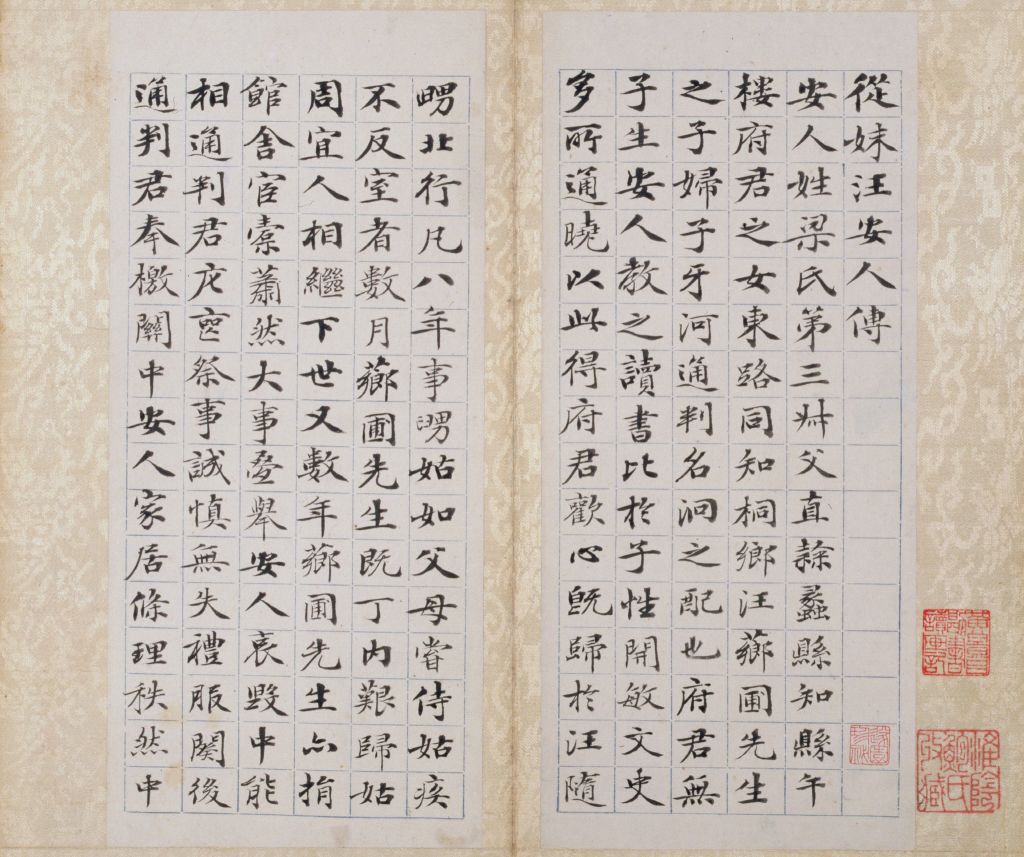 從妹汪安人傳
安人姓梁氏第三叔父直隸蠡縣知縣午
樓府君之女東路同知桐鄉汪薌圃先生
之子婦子牙河通判名泂之配也府君無
子生安人教之讀書比於子性開敏文史
多所通曉以此得府君歡心既歸於汪隨
舅北行凡八年事舅姑如父母嘗侍姑疾
不反室者數月薌圃先生既丁内艱歸姑
周宜人相繼下世又數年薌圃先生亦捐
館舍宦橐蕭然大事疊舉安人哀毀中能
相通判君庀喪祭事誠慎無失禮服闋後
通判君奉檄關中安人家居條理秩然中